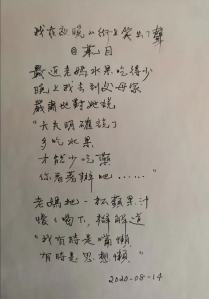 我在夜晚
笑出了聲
最近老媽水果吃得少
晚上我去到父母家
嚴肅地對她說
"大夫明確說了
多吃水果
才能少吃藥
你看著辦吧……"
老媽
一杯蘋果汁
慢慢喝下，辯解道
"我有時是嘴懶
有時是思想懶"
2020-08-14